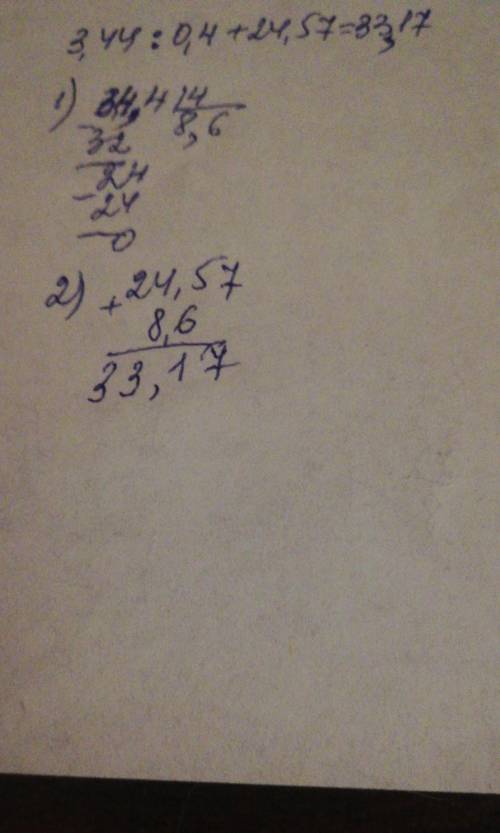 3,44 : 0,4 + 24,57 = 33,17
1) 34,4 | 4
8,6
- 32
24
- 24
0
2) + 24,57
8,6
33,17